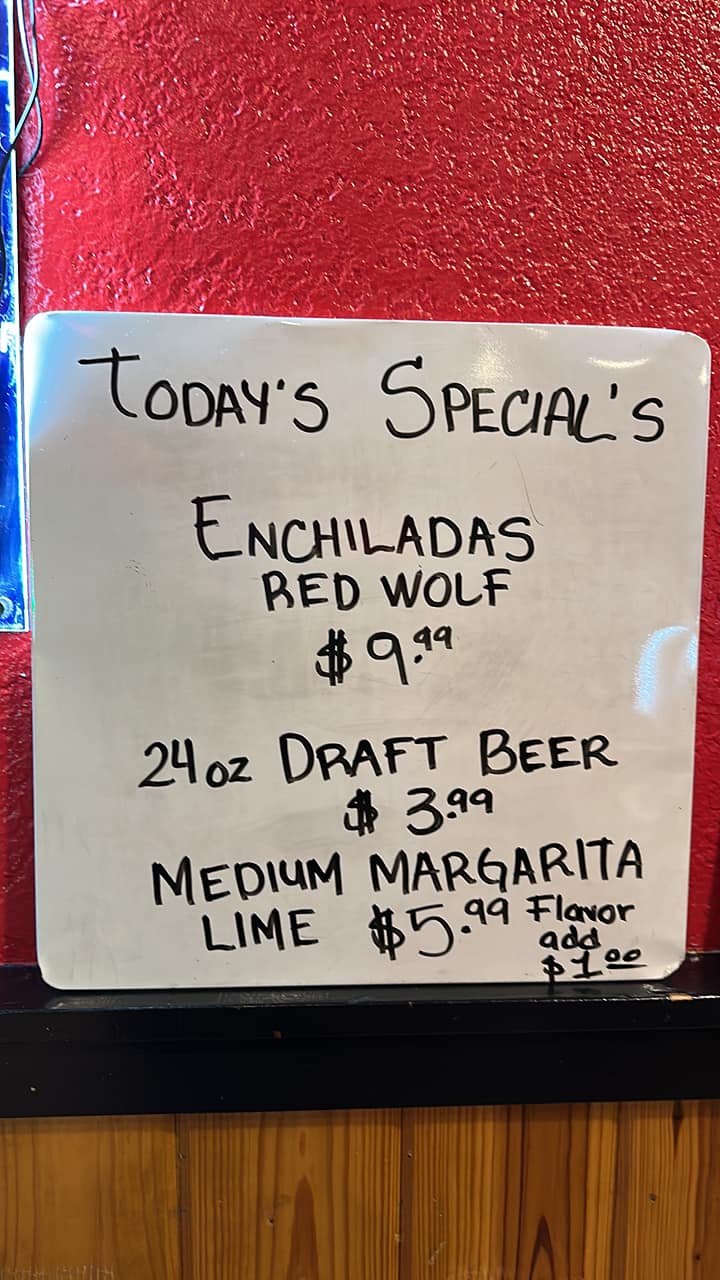 TODAY'S SPECIAL'S
ENCHILADAS
RED WOLF
$9.99
24oz DRAFT BEER
$3.99
MEDIUM MARGARITA
LIME $5.99 Flavor
add
$1.00